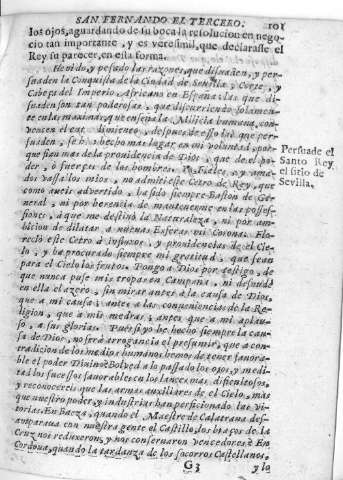 SAN FERNANDO EL TERCERO. 101
los ojos, aguardando de su boca la resolucion en nego-
cio tan importante, y es verosimil, que declarasse el
Rey su parecer, en esta forma.
He oìdo, y pesado las razones, que disuaden, y per-
suaden la Conquista de la Ciudad de Sevilla, Corte, y
Cabeça del Imperio Africano en España: las que di-
suaden son tan poderosas, que discurriendo solamen-
te en las maximas, que enseña la Milicia humana, con-
vencen el entendimiento, despues de esso las que per-
suaden, se han hecho mas lugar en mi voluntad, por-
que fian mas de la providencia de Dios, que de el po-
der, ò fuerças de los hombres. Yo, Fieles, y ama-
dos vassallos mios, no admitì este Cetro de Rey, que
como aveis advertido, ha sido siempre Baston de Ge-
neral, ni por herencia de mantenerme en las posses-
siones, à que me destinò la Naturaleza, ni por am-
bicion de dilatar à nuevas Esferas mi Corona. Flo-
reciò este Cetro à influxos, y providencias de el Cie-
lo, y ha procurado siempre mi gratitud, que sean
para el Cielo los frutos. Pongo à Dios por testigo, de
que nunca puse mis tropas en Campaña, ni desnudè
en ella el azero, sin mirar antes à la causa de Dios,
que à mi causa; antes à las conveniencias de la Re-
ligion, que à mis medras; antes que à mi aplau-
so, à sus glorias. Pues si yo he hecho siempre la cau-
sa de Dios, no serà arrogancia el presumir, que à con-
tradicion de los medios humanos hemos de tener favora-
ble el poder Divino. Bolved à lo passado los ojos, y medi-
tad los sucessos favorables en los lances mas dificultosos,
y reconocereis que las armas auxiliares de el Cielo, mas
que nuestro poder, y industria, han perficionado las vi-
torias. En Baeza, quando el Maestre de Calatrava des-
amparava con nuestra gente el Castillo, los braços de la
Cruz nos reduxeron, y nos conservaron vencedores. En
Cordova, quando la tardança de los socorros Castellanos,
G3 y lo
Persuade el
Santo Rey
el sitio de
Sevilla.